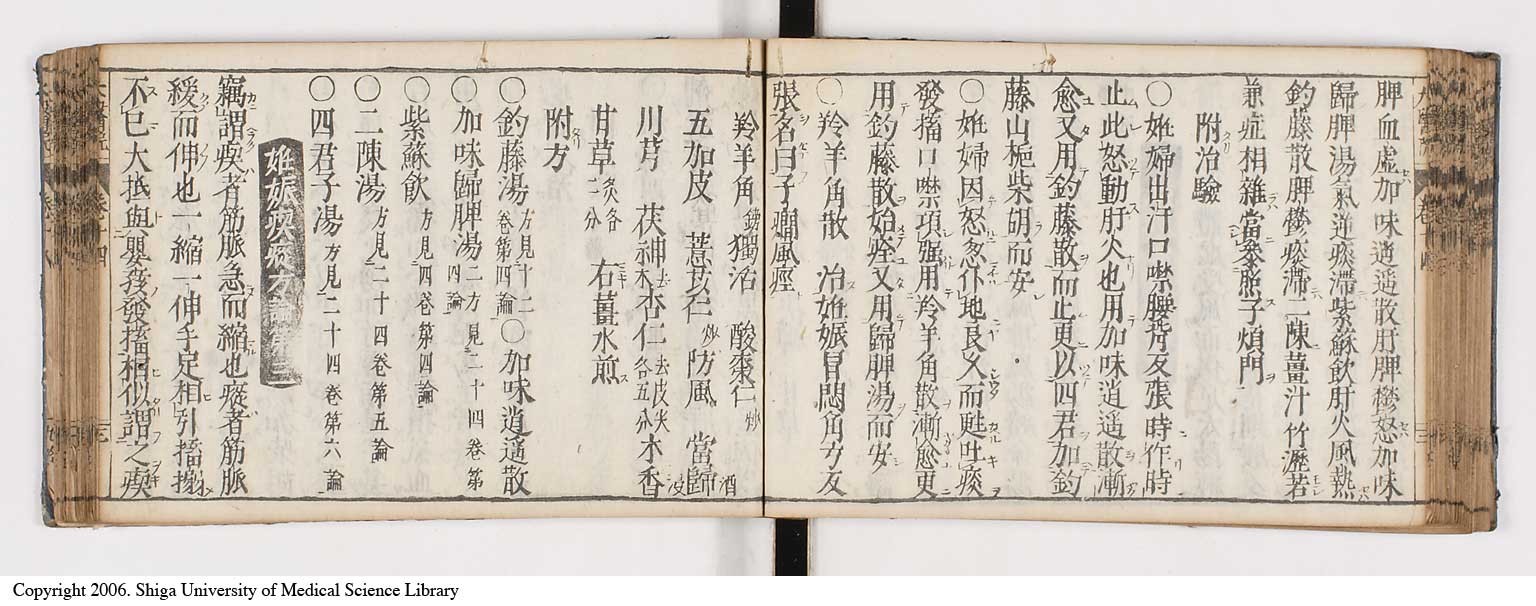 脾血虚加味逍遥散肝脾欝怒加味
歸脾湯氣逆痰滯紫蘇飲肝火風熱
釣藤散脾欝痰滯二陳薑汁竹瀝若
兼症相雜當參照子煩門
附治驗
〇姙婦出汗口噤腰背反張時作時
止此怒動肝火也用加味逍遥散漸
愈又用釣藤散而止更以四君加釣
藤山梔柴胡而安
〇姙婦因怒忽仆地良久而甦吐痰
發搐口噤項强用羚羊角散漸愈更
用釣藤散始痊又用歸脾湯而安
〇羚羊角散 治姙娠冒悶角弓反
張名曰子癇風痙
羚羊角鎊 獨活 酸棗仁炒
五加皮 薏苡仁炒 防風 當歸酒浸
川芎 茯神去木 杏仁去皮尖各五分 木香
甘草炙各二分 右薑水煎
附方
〇釣藤湯方見十二卷第四論〇加味逍遥散
〇加味歸脾湯二方見二十四卷第四論
〇紫蘇飲方見四卷第四論
〇二陳湯方見二十四卷第五論
〇四君子湯方見二十四卷第六論
姙娠瘈瘲方論第三
竊謂瘈者筋脈急而縮也瘲者筋脈
緩而伸也一縮一伸手足相引搐搦
不已大抵與嬰孩發搐相似謂之瘈
Copyright 2006. Shiga University of Medical Science Library